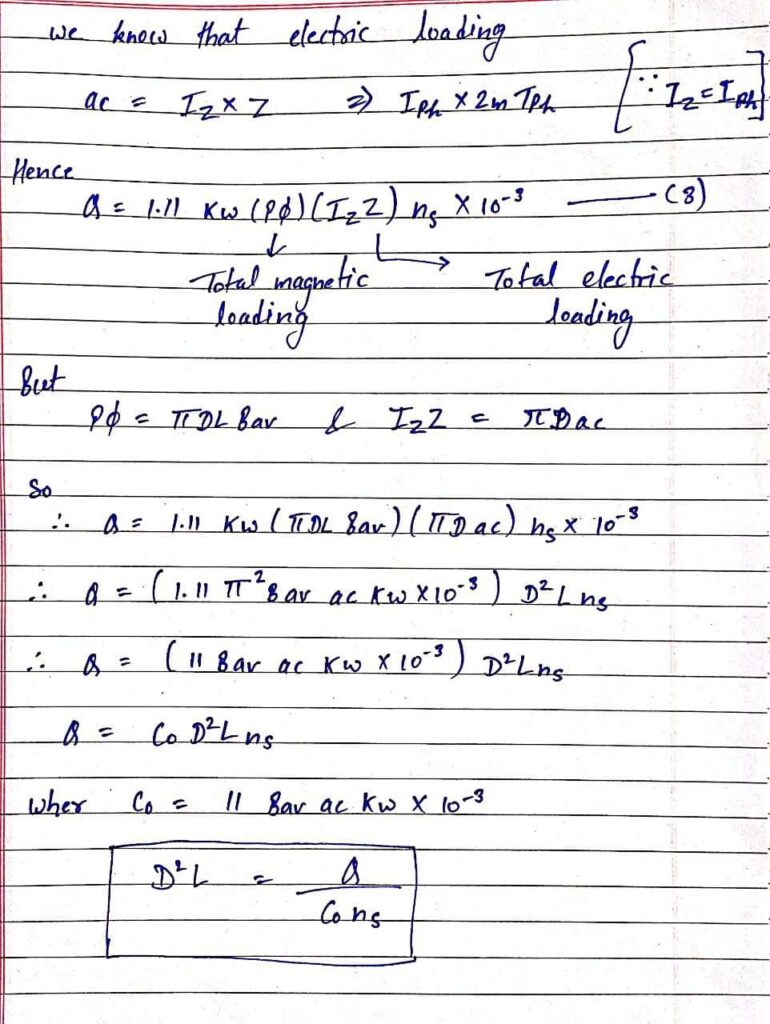 we know that electric loading
ac = Iz × Z ⇒ Iph × 2m Tph [∵ Iz = Iph]
Hence
Q = 1.11 Kw (Pϕ) (IzZ) ns × 10⁻³ —— (8)
↓ ↳
Total magnetic Total electric
loading loading
But
Pϕ = πDL Bav & IzZ = πD ac
So
∴ Q = 1.11 Kw (πDL Bav) (πD ac) ns × 10⁻³
∴ Q = (1.11 π² Bav ac Kw × 10⁻³) D²L ns
∴ Q = (11 Bav ac Kw × 10⁻³) D²Lns
Q = Co D²L ns
wher Co = 11 Bav ac Kw × 10⁻³
D²L = Q / Co ns